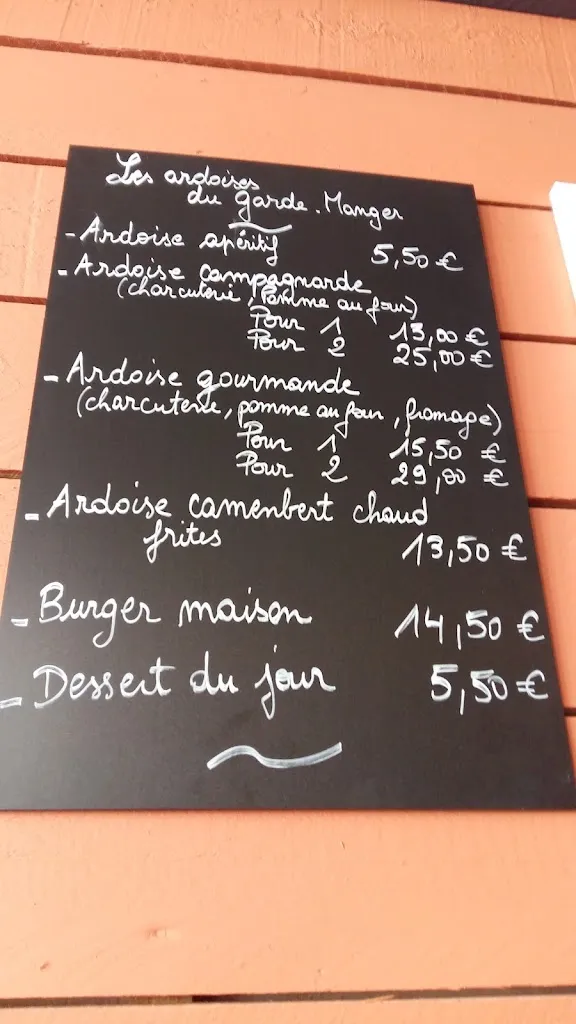 Les ardoises
du Garde-Manger
- Ardoise apéritif 5,50 €
- Ardoise campagnarde
(charcuterie, pomme au four)
Pour 1 13,00 €
Pour 2 25,00 €
- Ardoise gourmande
(charcuterie, pomme au four, fromage)
Pour 1 15,50 €
Pour 2 29,00 €
- Ardoise camenbert chaud
frites 13,50 €
- Burger maison 14,50 €
- Dessert du jour 5,50 €